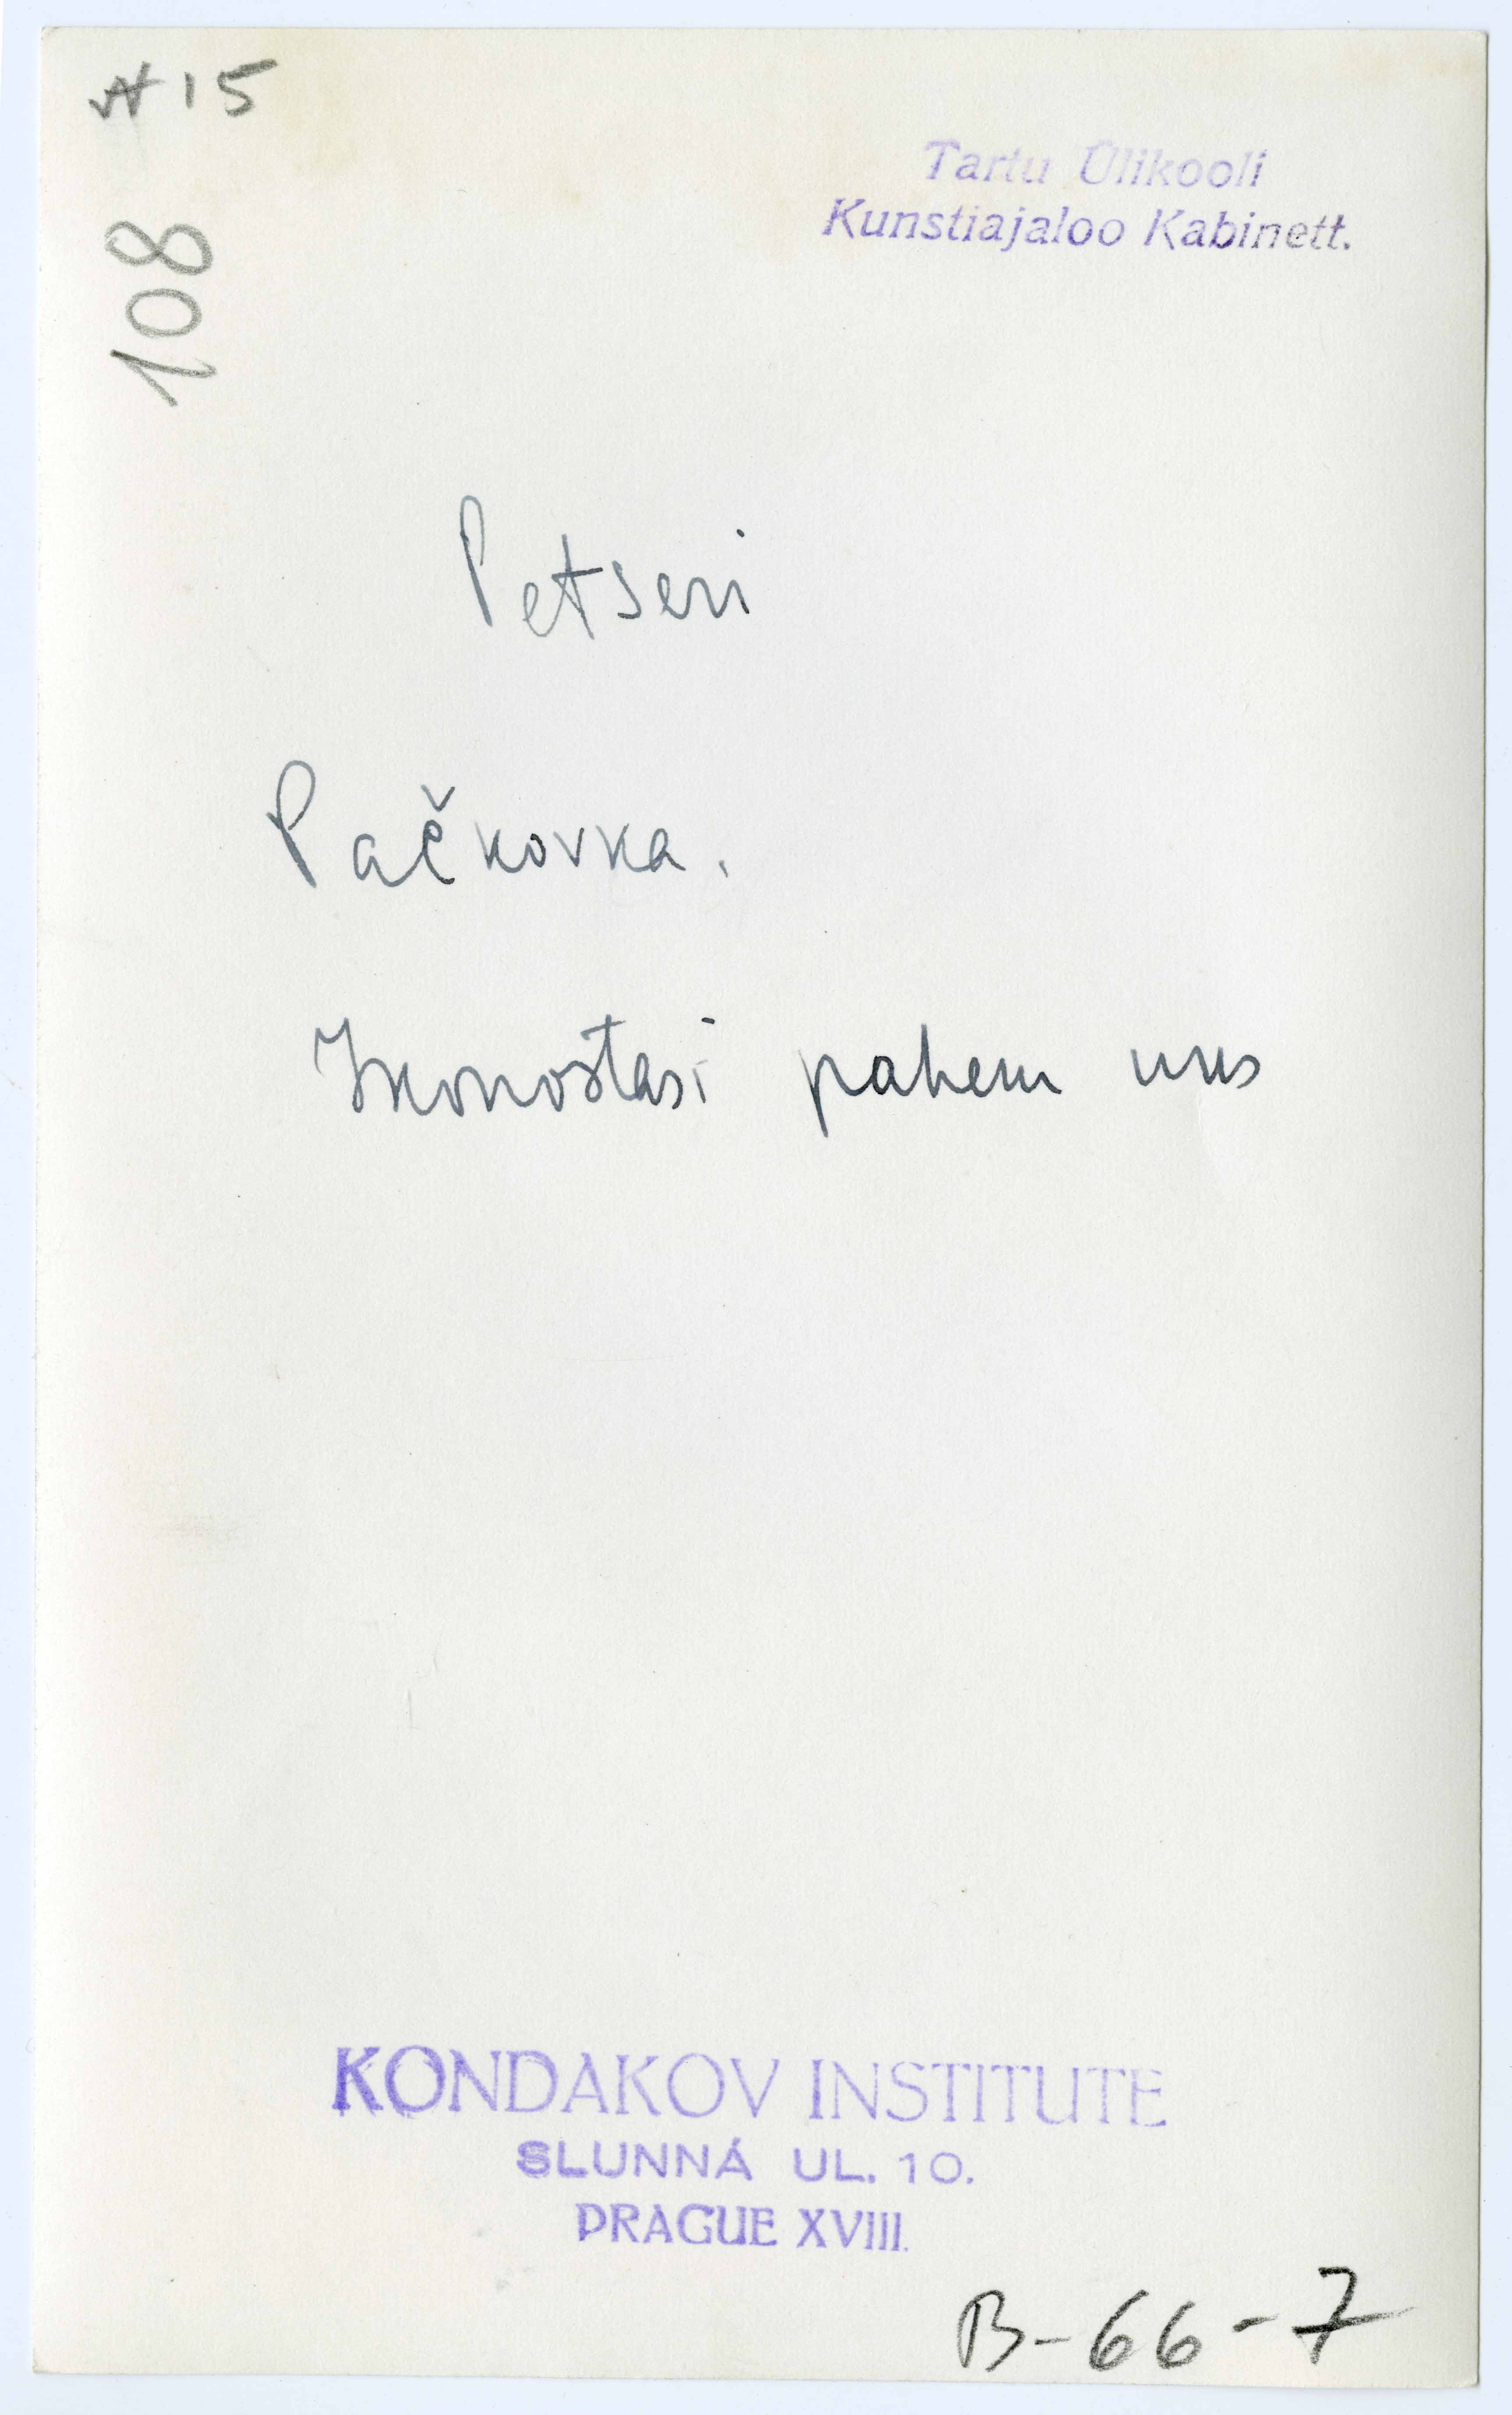 № 15
Tartu Ülikooli
Kunstiajaloo Kabinett.
108
Petseri
Pačkovka.
Ikonostasi pahem uks
KONDAKOV INSTITUTE
SLUNNÁ UL. 10.
PRAGUE XVIII.
B-66-7